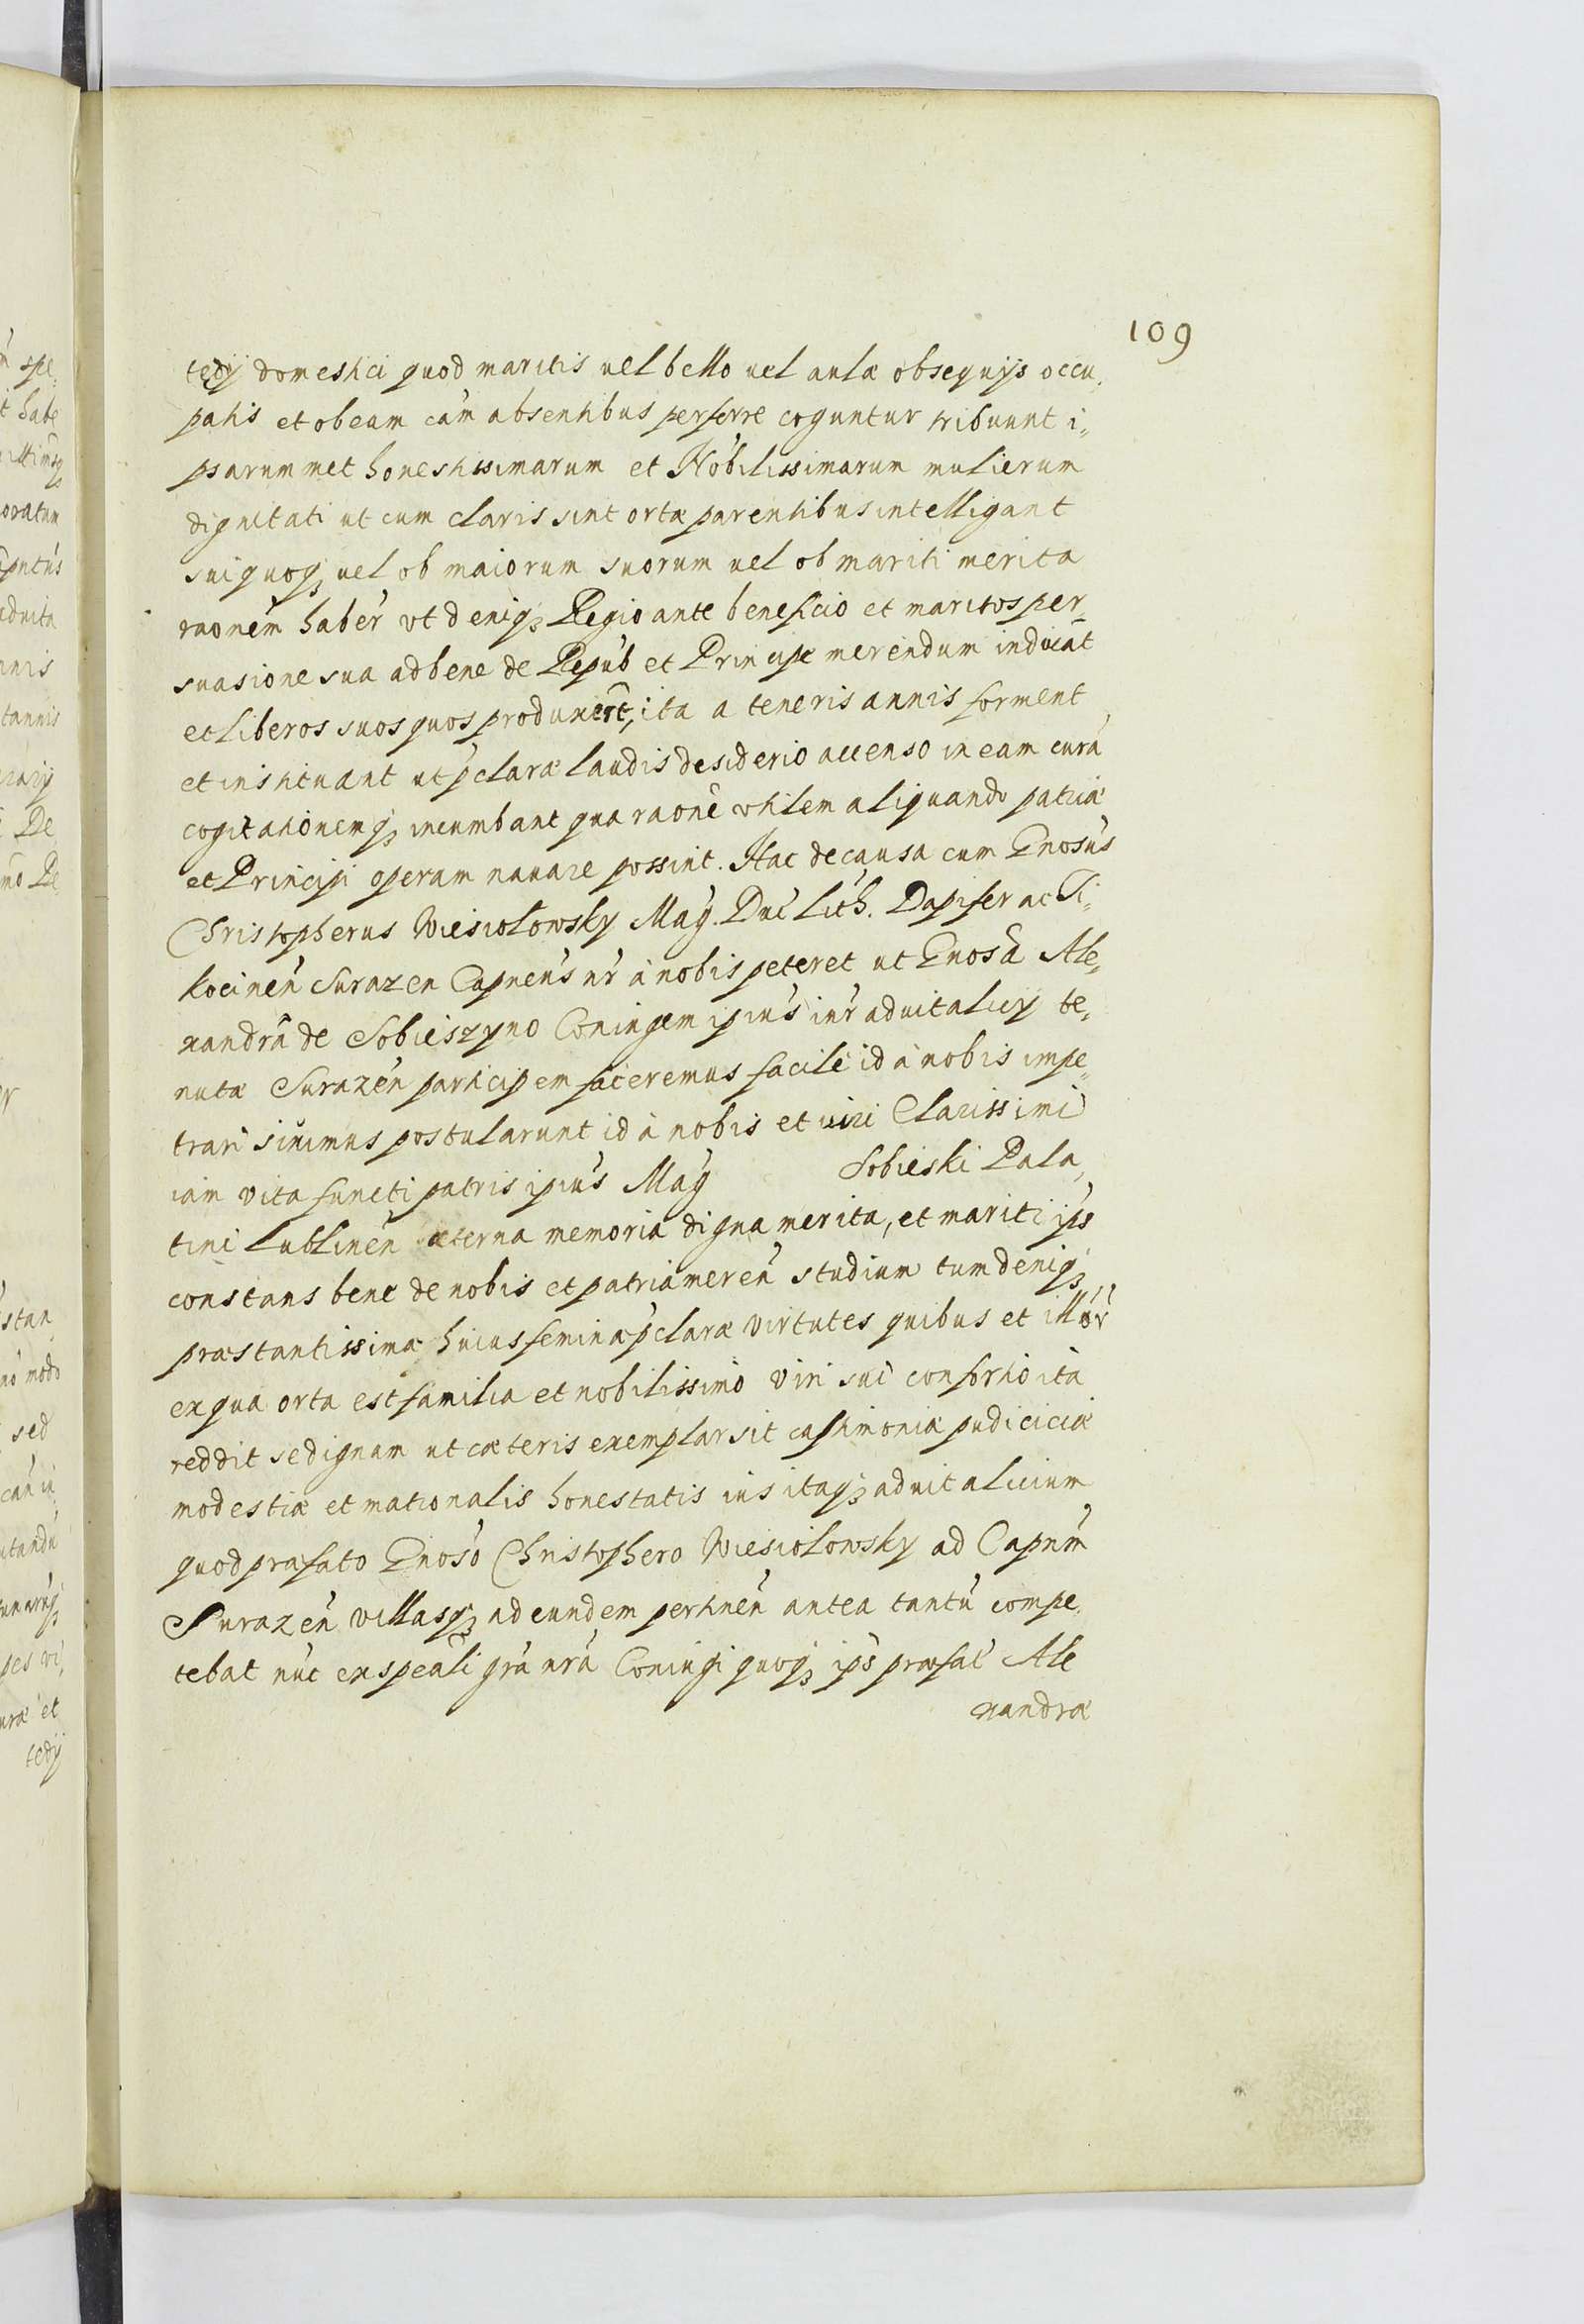 109
tedij domestici quod maritis uel bello uel aulæ obsequijs occu,
patis et ob eam cam̃ absentibus perferre coguntur tribuunt i„
psarummet honestissimarum et Nobilissimarum mulierum
dignitati ut cum claris sint ortæ parentibus intelligant
sui quoq₃ uel ob maiorum suorum uel ob mariti merita
raonem̃ haber̃ vt deniq₃ Regio ante beneficio et maritos per„
suasione sua ad bene de Repub̃ et Principe merendum inducãt
et liberos suos quos produxer̃t, ita a teneris annis forment
et instituant ut p̃claræ laudis desiderio accenso in eam curã
cogitationemq₃ incumbant qua raone vtilem aliquando patriæ
et Principi operam nauare possint. Hac de causa cum Gnosus
Christopherus Wiesiołowsky Mag̃. Duc̃ Lith̃. Dapifer ac Ti„
kocineñ Surazeñ Capneus nr̃ à nobis peteret ut Gnosã Ale„
xandrã de Sobieszyno Coniugem ipius̃ iur̃ aduitalicij te„
nutæ Surazeñ participem faceremus facile id à nobis impe„
trari siuimus postularunt id à nobis et uiri Clarissimi
iam vita functi patris ipius̃ Mag̃ Sobieski Pala,
tini Lublineñ æterna memoria digna merita, et mariti ips̃
constans bene de nobis et patria mereñ studium tum deniq₃
præstantissimæ huius feminæ p̃claræ virtutes quibus et illūr̃
ex qua orta est familia et nobilissimo viri sui consortio ita
reddit se dignam ut cæteris exemplar sit castimoniæ pudiciciæ
modestiæ et mationalis honestatis ius itaq₃ aduitalicium
quod præfato Gnoso Christophero Wiesiolowsky ad Capnm̃
Surazeñ villasq₃ ad eundem pertineñ antea tantũ compe,
tebat nũc ex speali grã nrã Coniugi quoq₃ ips̃ præfat̃ Ale
xandræ